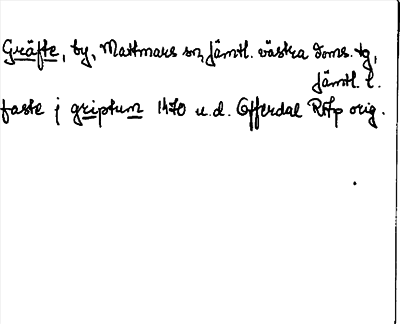 Gräfte, by, Mattmars sn, Jämtl. västra doms. tg,
Jämtl. l.
faste j griptum 1470 u.d. Offerdal Röfp orig.